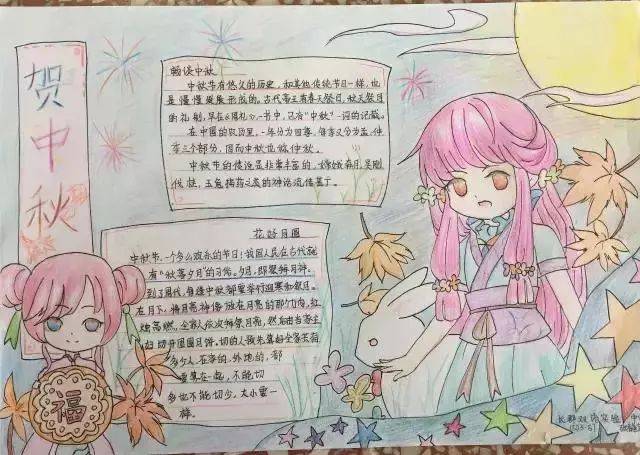 贺中秋
畅谈中秋
中秋节有悠久的历史,和其他传统节日一样,也
是慢慢发展形成的。古代帝王有春天祭日,秋天祭月
的礼制,早在《周礼》一书中,已有“中秋”一词的记载。
在中国的农历里,一年分为四季,每季又分为孟、仲、
季三个部分,因而中秋也称仲秋。
中秋节的传说是非常丰富的,嫦娥奔月,吴刚
伐桂,玉兔捣药之类的神话流传甚广。
花好月圆
中秋节,一个多么欢乐的节日!我国人民在古代就
有“秋暮夕月”的习俗。夕月,即祭拜月神。
到了周代,每逢中秋都要举行迎寒和祭月。
在月下,将月亮神像放在月亮的那个方向,红
烛高燃,全家人依次拜祭月亮,然后由当家主
妇切开团圆月饼。切的人预先算好全家共有
多少人,在家的,外地的,都
要算在一起,不能切
多也不能切少,大小要一
样。
福